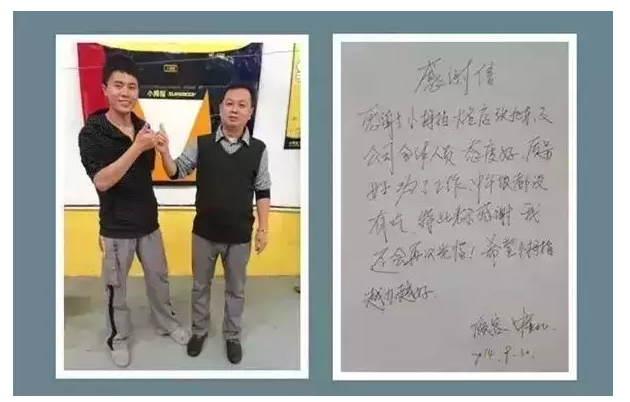 小拇指
感谢信
感谢小拇指大店张及
公司全体人员 态度好, 质量
好 为了工作, 中午饭都没
有吃, 特此表示感谢, 我
还会再次光临! 希望小拇指
越办越好.
顾客
2014.9.30.